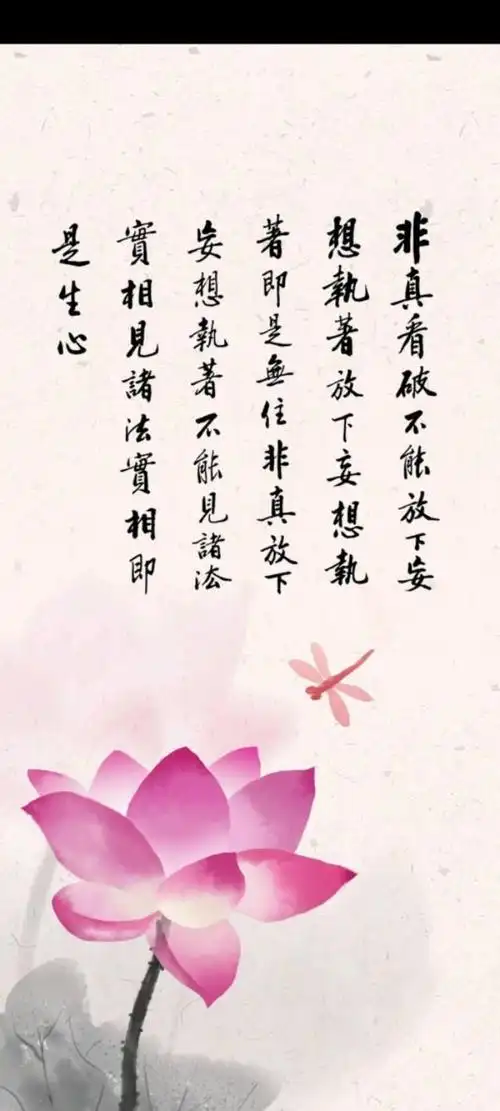 非真看破不能放下妄
想執著放下妄想執
著即是無住非真放下
妄想執著不能見諸法
實相見諸法實相即
是生心